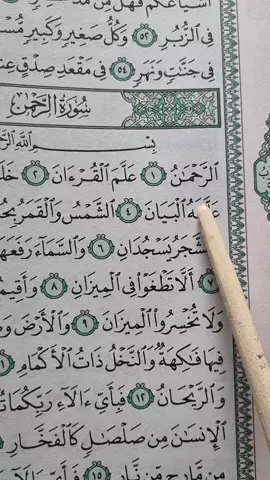 أشياعكم فهل من
في ٱلزُّبُرِ ٥٢ وَكُلُّ صَغِيرٍ وَكَبِيرٍ
في جَنَّٰتٍ وَنَهَرٍ ٥٤ فِي مَقْعَدِ صِدْقٍ
سُورَةُ الرَّحْمَٰن
بِسْمِ ٱللَّهِ
ٱلرَّحْمَٰنُ ١ عَلَّمَ ٱلْقُرْءَانَ ٢
ٱلْبَيَانَ ٤ ٱلشَّمْسُ وَٱلْقَمَرُ
يَسْجُدَانِ ٦ وَٱلسَّمَآءَ رَفَعَهَا
٧ أَلَّا تَطْغَوْا۟ فِي ٱلْمِيزَانِ ٨ وَأَقِيمُوا
وَلَا تُخْسِرُوا۟ ٱلْمِيزَانَ ٩ وَٱلْأَرْضَ
فِيهَا فَٰكِهَةٌ وَٱلنَّخْلُ ذَاتُ ٱلْأَكْمَامِ
وَٱلرَّيْحَانُ ١٢ فَبِأَيِّ ءَالَآءِ رَبِّكُمَا
ٱلْإِنسَٰنَ مِن صَلْصَٰلٍ كَٱلْفَخَّارِ
مِن مَّارِجٍ مِّن نَّارٍ ١٥ فَبِأَيِّ